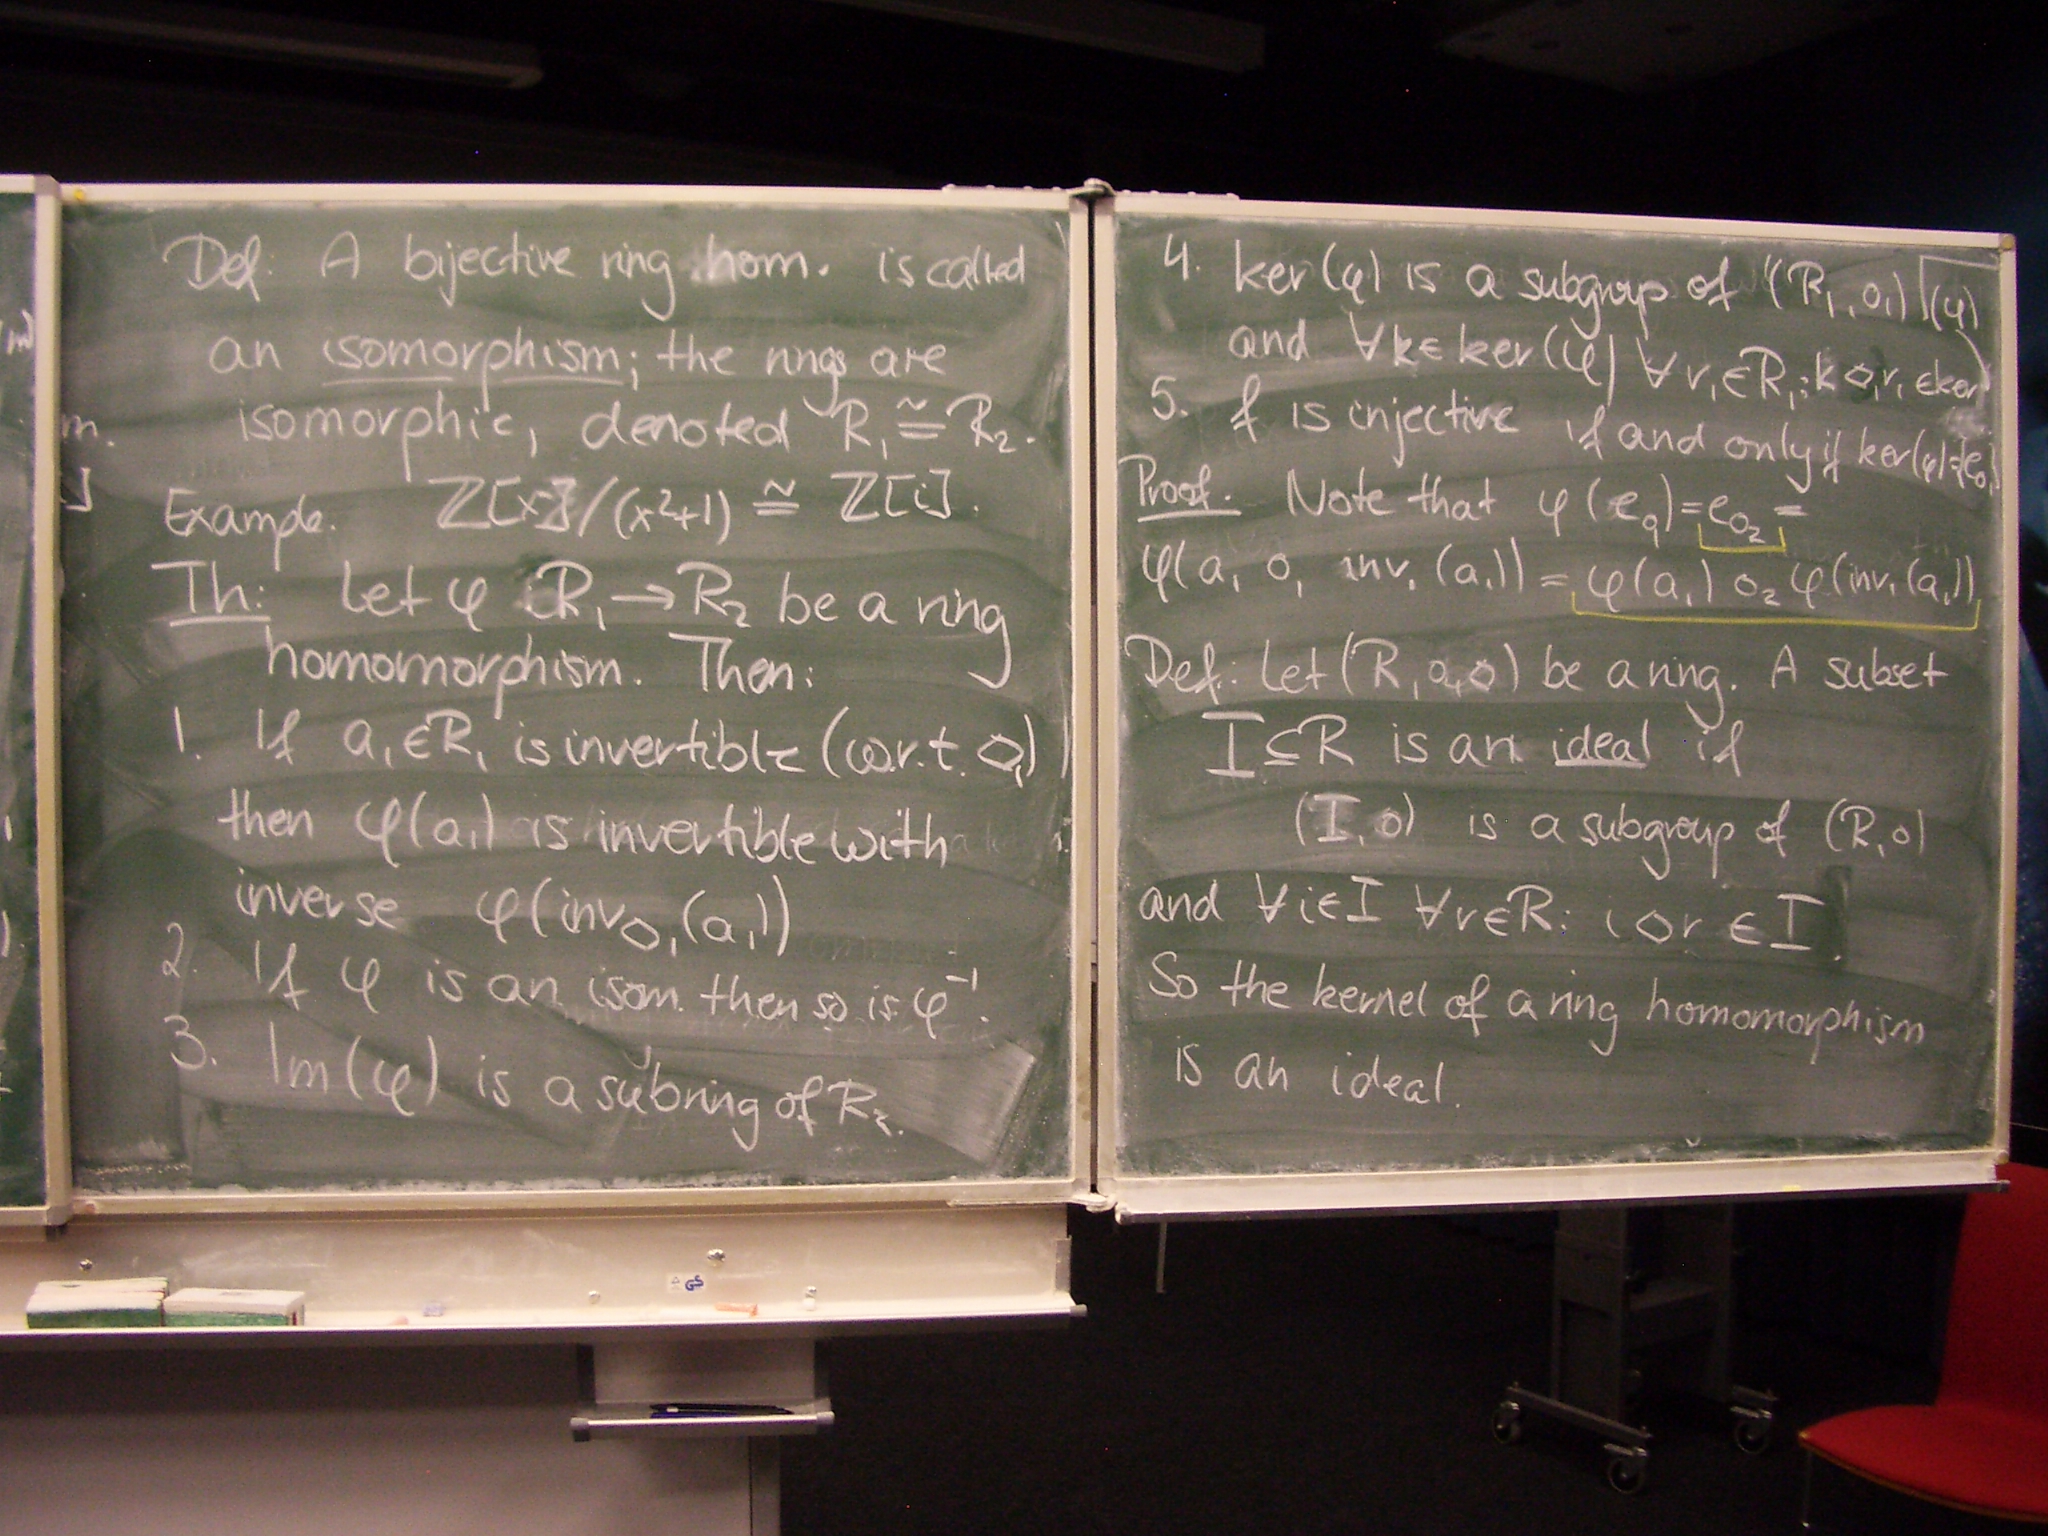 Def: A bijective ring hom. is called
an isomorphism; the rings are
isomorphic, denoted R₁ ≅ R₂.
Example. ℤ[x]/(x²+1) ≅ ℤ[i].
Th: Let φ: R₁ → R₂ be a ring
homomorphism. Then:
1. If a₁∈R₁ is invertible (w.r.t. ◇₁)
then φ(a₁) is invertible with
inverse φ(inv◇₁(a₁))
2. If φ is an isom. then so is φ⁻¹.
3. Im(φ) is a subring of R₂.
4. ker(φ) is a subgroup of (R₁,o₁)
and ∀k∈ker(φ) ∀r₁∈R₁: k◇₁r₁ ∈ker (φ)
5. f is injective if and only if ker(φ)={e₀₁}
Proof. Note that φ(e₀₁)=e₀₂=
φ(a₁ o₁ inv₁(a₁)) = φ(a₁) o₂ φ(inv₁(a₁))
Def: Let (R,o,◇) be a ring. A subset
I⊆R is an ideal if
(I,o) is a subgroup of (R,o)
and ∀i∈I ∀r∈R: i◇r ∈ I
So the kernel of a ring homomorphism
is an ideal.
m.
]
GS